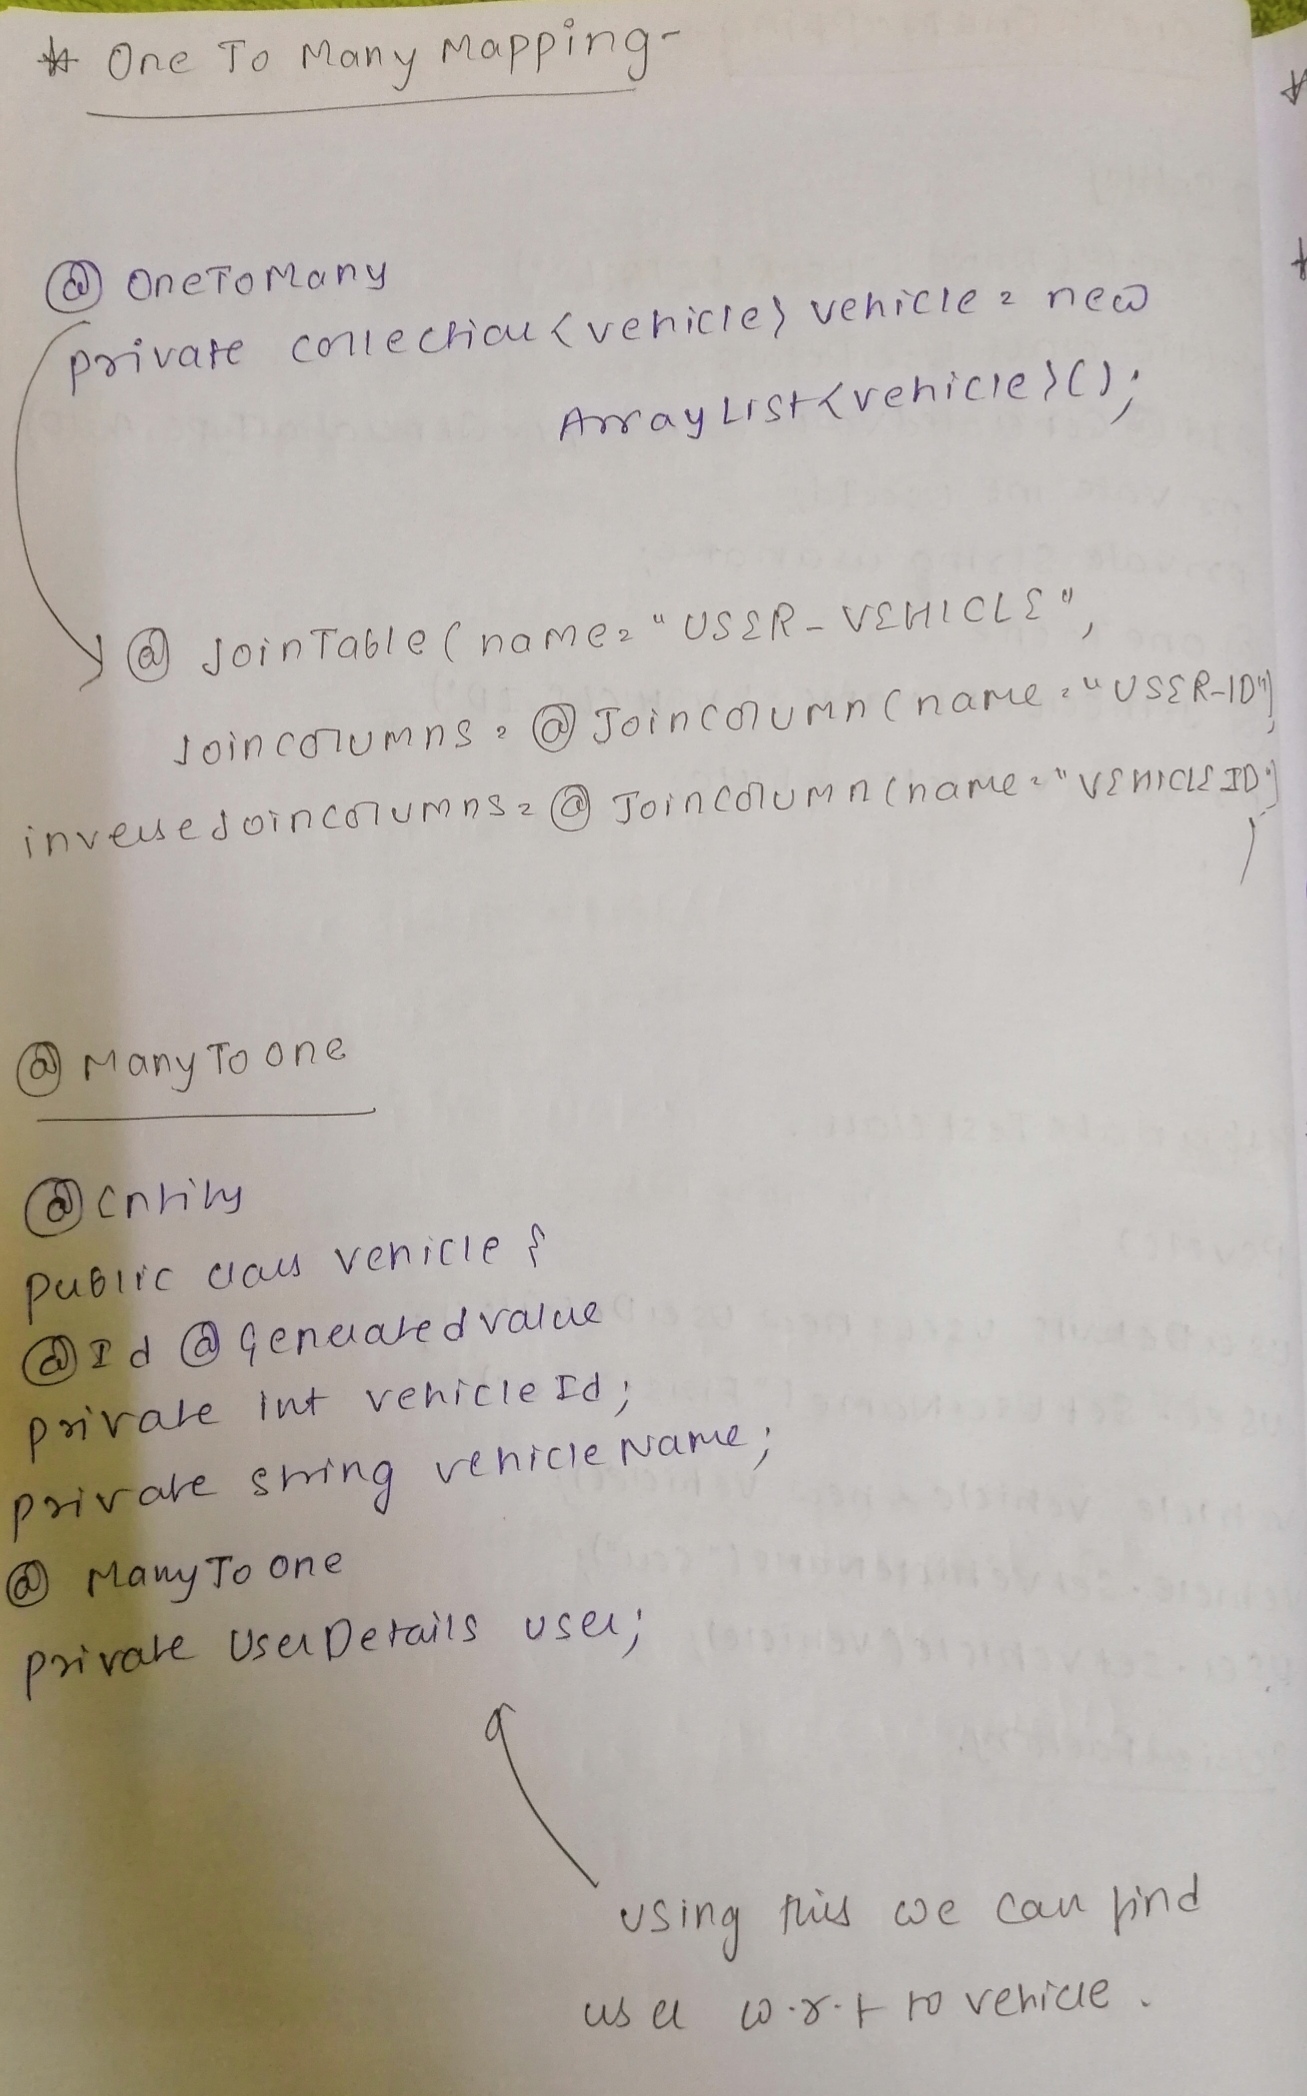 * One To Many Mapping-
@ OneToMany
private collection <vehicle> vehicle = new
ArrayList<vehicle>();
@ JoinTable ( name = "USER_VEHICLE",
Joincolumns = @ Joincolumn ( name = "USER-ID")
inverseJoincolumns = @ Joincolumn (name = "VEHICLE ID")
)
@ Many To one
@ Entity
public class vehicle {
@ Id @ Generated value
private int vehicle Id ;
private string vehicle Name ;
@ Many To one
private User Details user ;
using this we can find
user w.r.t to vehicle .